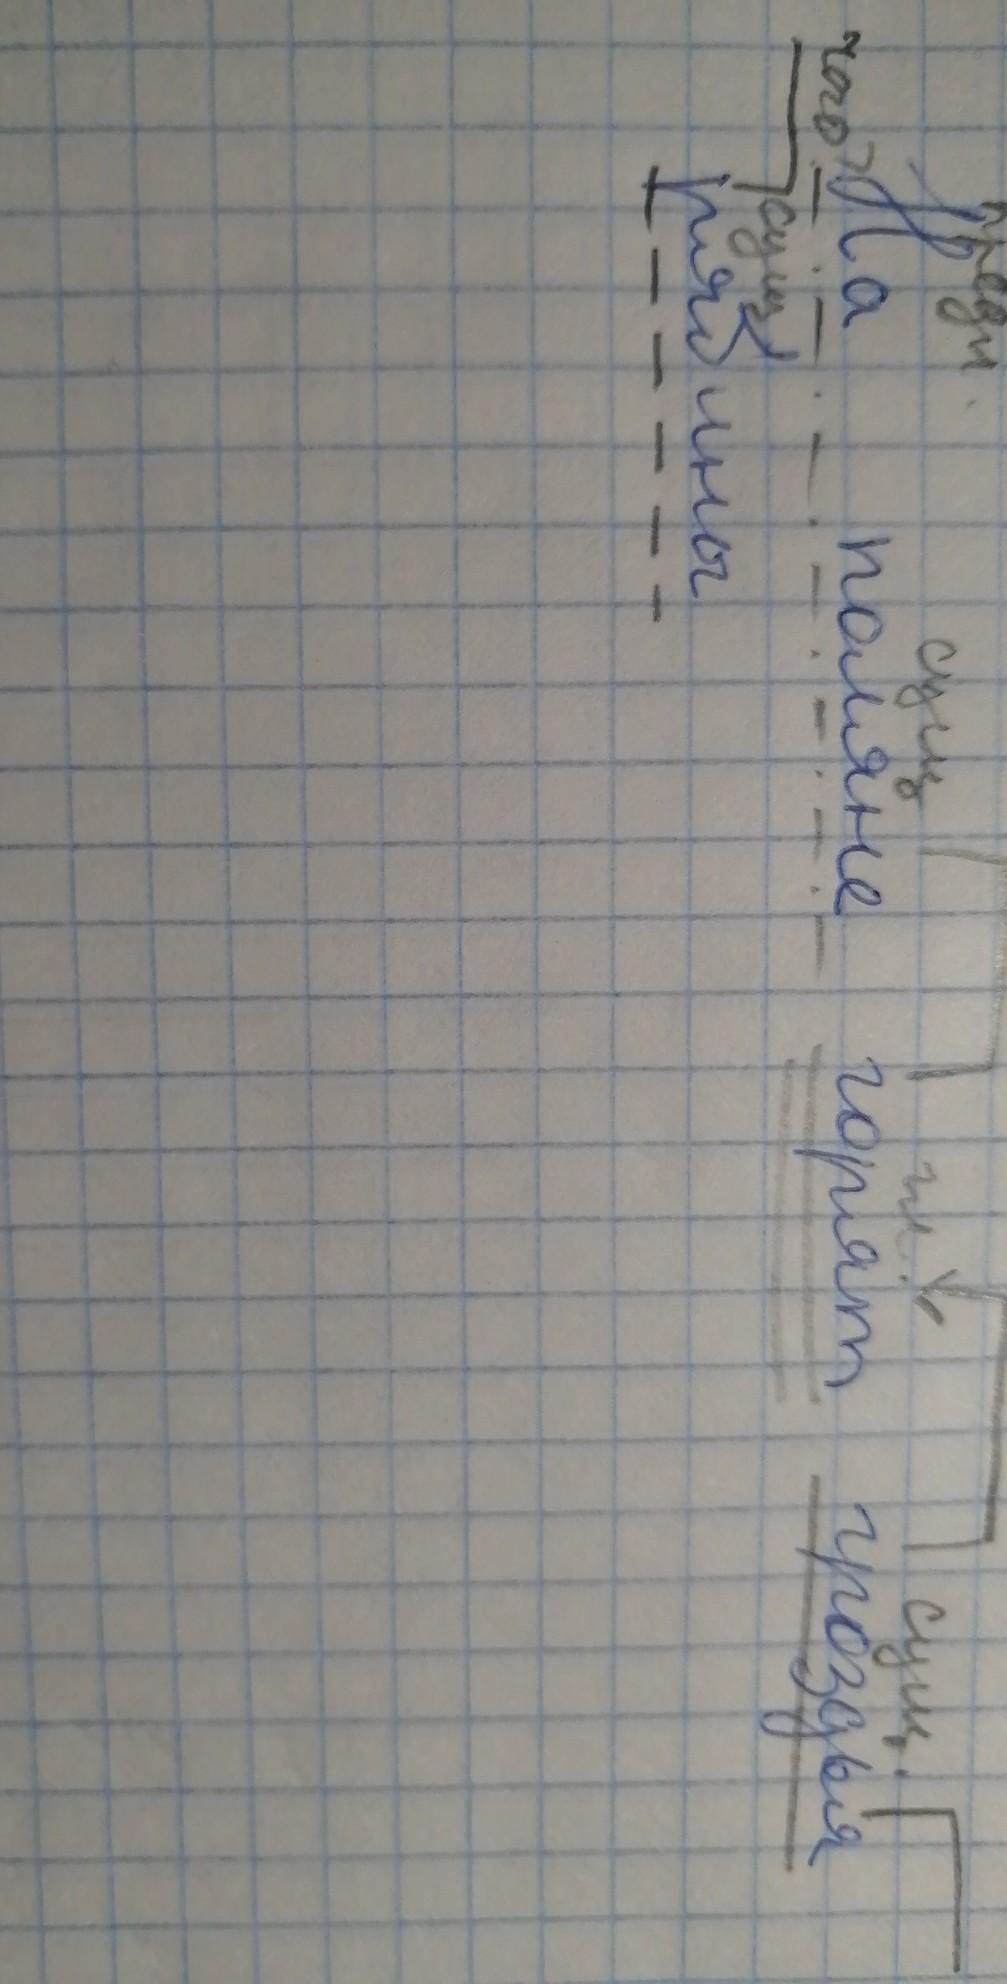 предл. сущ гл. сущ.
На поляне горят гроздья
чого? сущ
рябины